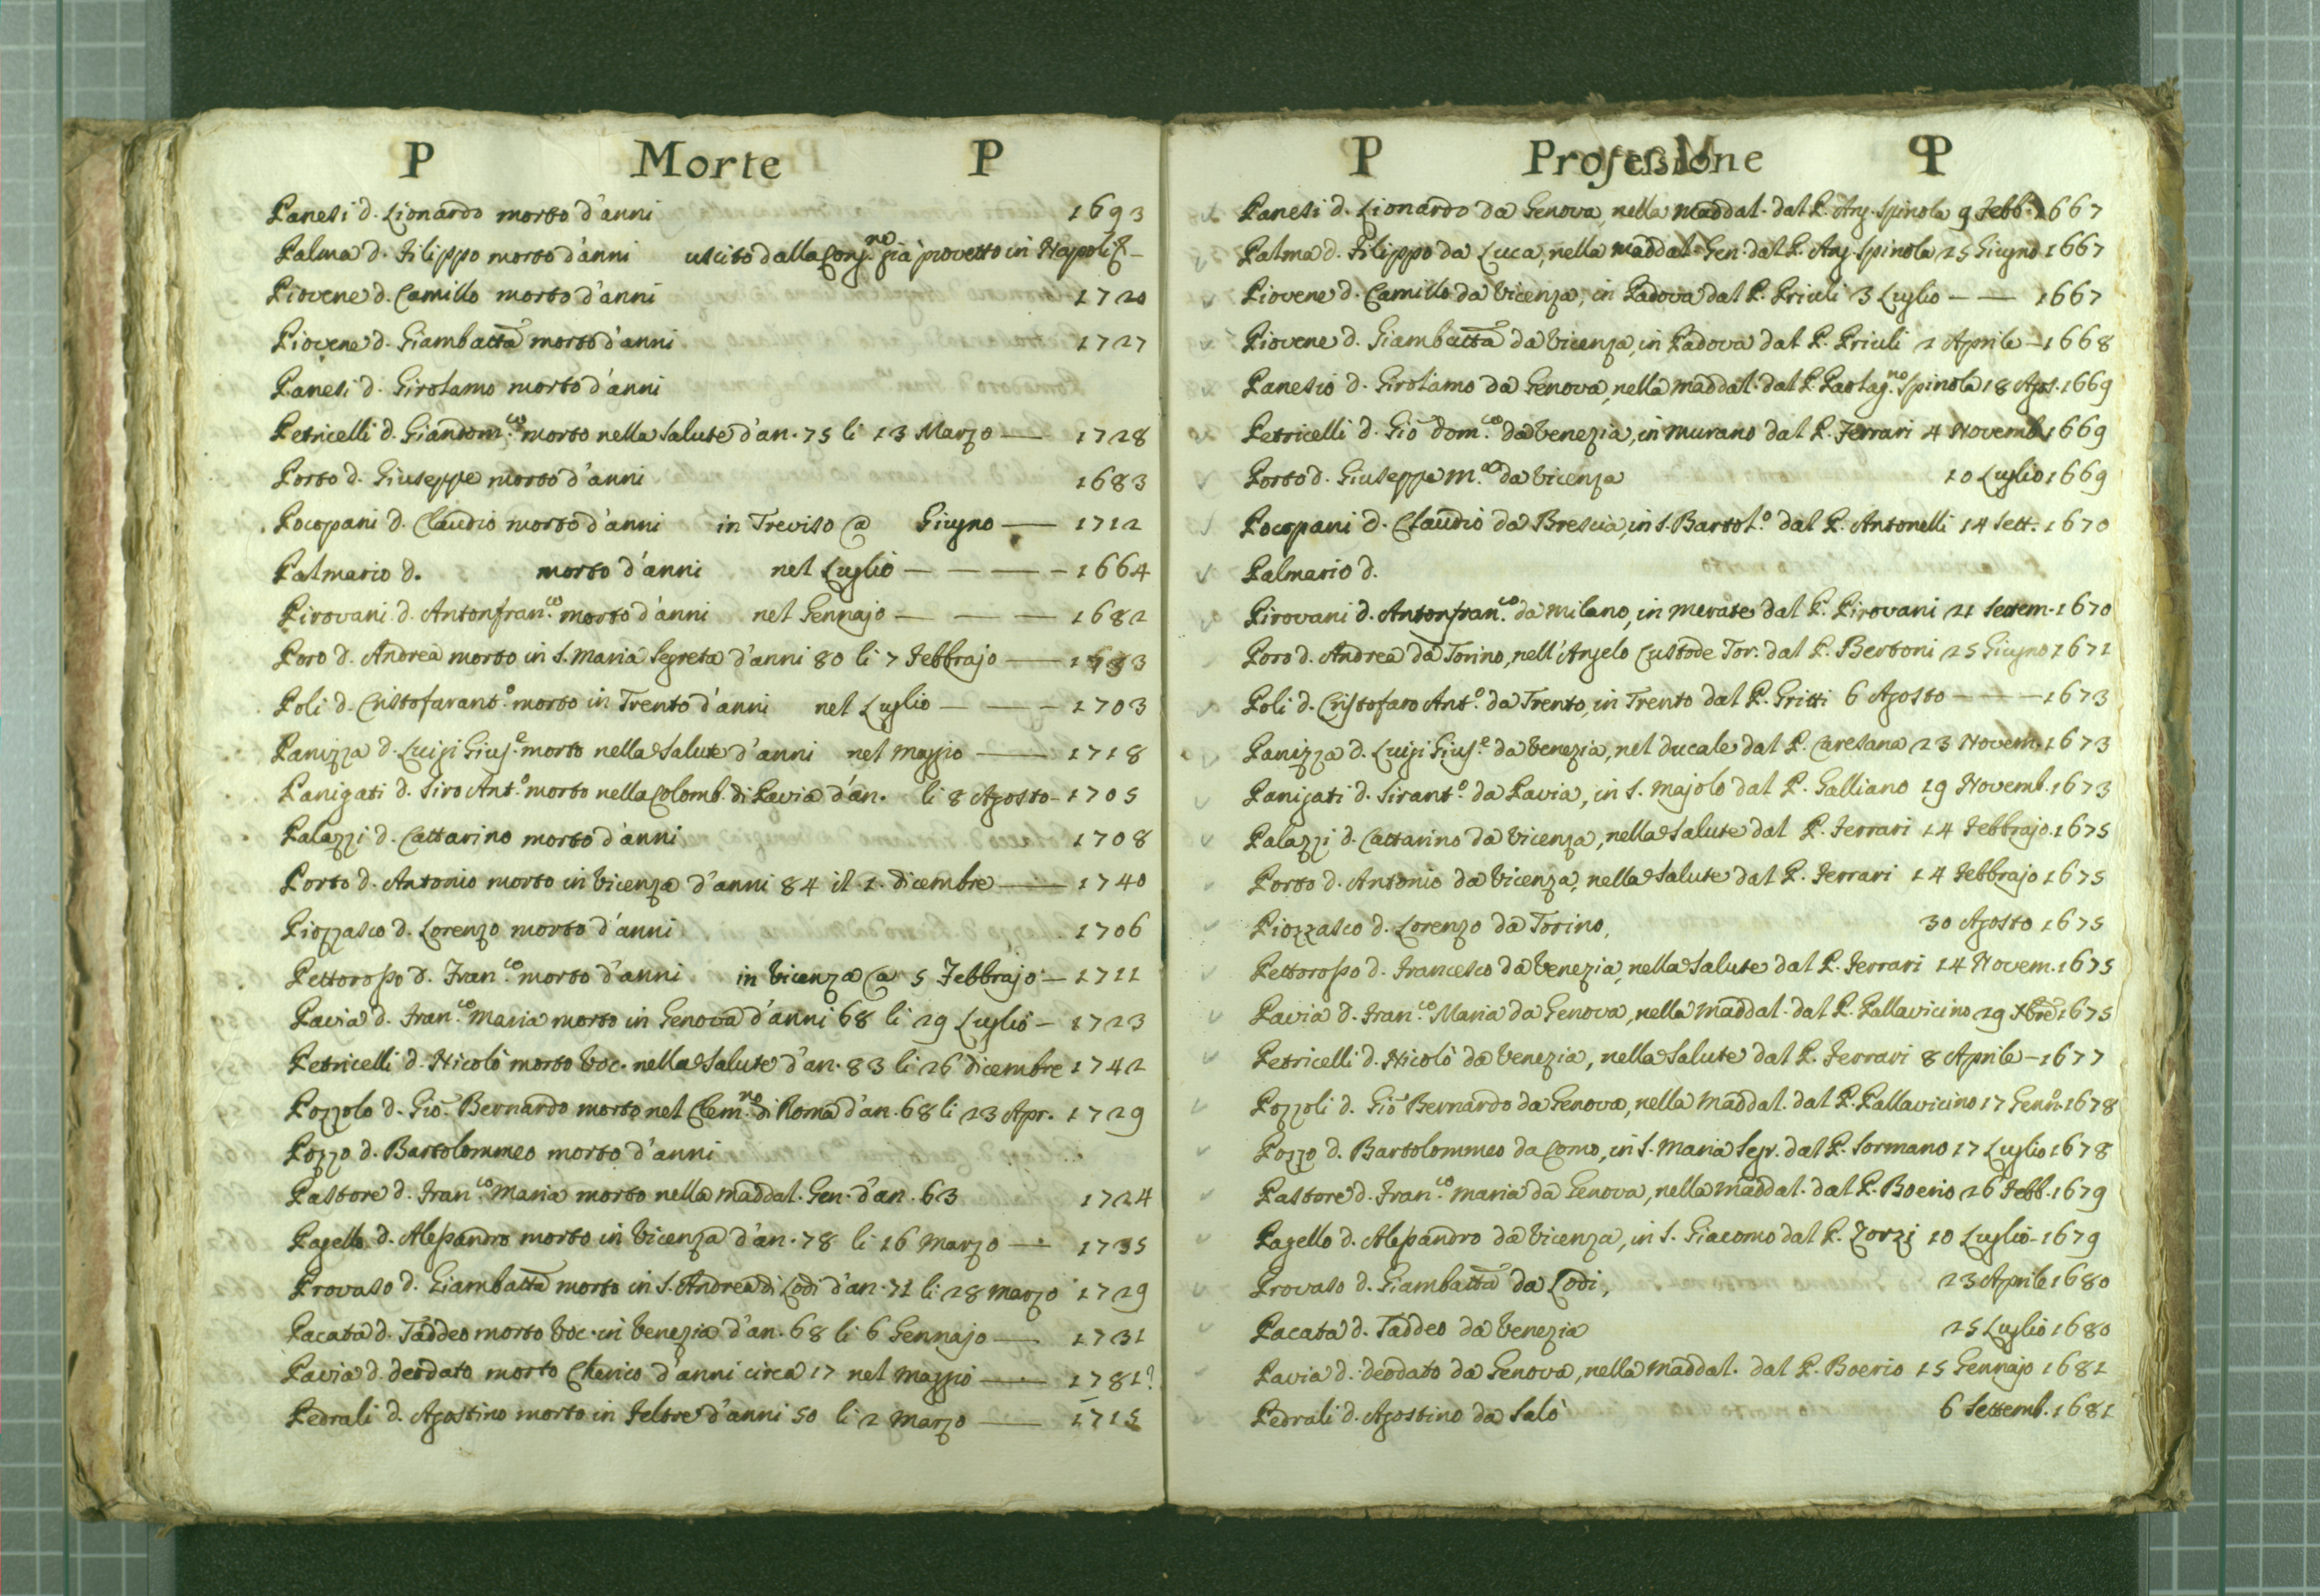 P Morte P
Panesi d. Lionardo morto d'anni 1693
Palma d. Filippo morto d'anni uscito dalla Cong.ne già provetto in Napoli
Piovene d. Camillo morto d'anni 1720
Piovene d. Giambatta morto d'anni 1727
Panesi d. Girolamo morto d'anni
Petricelli d. Giandom.co morto nella Salute d'an. 75 li 13 Marzo — 1728
Porto d. Giuseppe morto d'anni 1683
Pocopani d. Claudio morto d'anni in Treviso a Giugno — 1712
Palmario d. morto d'anni nel Luglio — — — — 1664
Pirovani d. Antonfran.co morto d'anni nel Gennajo — — — 1682
Poro d. Andrea morto in S. Maria Segreta d'anni 80 li 7 Febbrajo —
Poli d. Cristofarant.o morto in Trento d'anni nel Luglio — — — 1703
Panizza d. Luigi Gius.e morto nella Salute d'anni nel Maggio — 1718
Panigati d. Siro Ant.o morto nella Colomb. di Pavia d'an. li 8 Agosto - 1705
Palazzi d. Cattarino morto d'anni 1708
Porto d. Antonio morto in Vicenza d'anni 84 il 1. dicembre — 1740
Piozzasco d. Lorenzo morto d'anni 1706
Pettorosso d. Fran.co morto d'anni in Vicenza a 5 Febbrajo — 1711
Pavia d. Fran.co Maria morto in Genova d'anni 68 li 29 Luglio — 1723
Petricelli d. Nicolò morto Voc. nella Salute d'an. 83 li 26 dicembre 1742
Pozzolo d. Gio Bernardo morto nel Clem.no di Roma d'an. 68 li 23 Apr. 1729
Pozzo d. Bartolommeo morto d'anni
Pastore d. Fran.co Maria morto nella Maddal. Gen. d'an. 63 1724
Pagello d. Alessandro morto in Vicenza d'an. 78 li 16 Marzo — 1735
Provaso d. Giambatta morto in S. Andrea di Lodi d'an. 71 li 28 Marzo 1729
Pacata d. Taddeo morto Voc. in Venezia d'an. 68 li 6 Gennajo — 1731
Pavia d. deodato morto Cherico d'anni circa 17 nel Maggio — 1781?
Pedrali d. Agostino morto in Feltre d'anni 50 li 2 Marzo — 1715
P Professione P
Panesi d. Lionardo da Genova, nella Maddal. dal P. Ang. Spinola 9 Febb. 1667
Palma d. Filippo da Luca, nella Maddal. Gen. dal P. Ang. Spinola 25 Giugno 1667
Piovene d. Camillo da Vicenza, in Padova dal P. Priuli 3 Luglio — — 1667
Piovene d. Giambatta da Vicenza, in Padova dal P. Priuli 2 Aprile — 1668
Panesio d. Girolamo da Genova, nella Maddal. dal P. Paolag.no Spinola 18 Agos. 1669
Petricelli d. Gio dom.co da Venezia, in Murano dal P. Ferrari 4 Novemb. 1669
Porto d. Giuseppe M.a da Vicenza 10 Luglio 1669
Pocopani d. Claudio da Brescia, in S. Bartol.o dal P. Antonelli 14 Sett. 1670
Palmario d.
Pirovani d. Antonfran.co da Milano, in Merate dal P. Pirovani 21 Settem. 1670
Poro d. Andrea da Torino, nell'Angelo Custode Tor. dal P. Bertoni 25 Giugno 1671
Poli d. Cristofaro Ant.o da Trento, in Trento dal P. Gritti 6 Agosto — — — 1673
Panizza d. Luigi Gius.e da Venezia, nel ducale dal P. Caresana 23 Novem. 1673
Panigati d. Sirant.o da Pavia, in S. Majolo dal P. Galliano 19 Novemb. 1673
Palazzi d. Cattarino da Vicenza, nella Salute dal P. Ferrari 14 Febbrajo. 1675
Porto d. Antonio da Vicenza, nella Salute dal P. Ferrari 14 Febbrajo 1675
Piozzasco d. Lorenzo da Torino, 30 Agosto 1675
Pettorosso d. Francesco da Venezia, nella Salute dal P. Ferrari 14 Novem. 1675
Pavia d. Fran.co Maria da Genova, nella Maddal. dal P. Pallavicino 29 Xbre 1675
Petricelli d. Nicolò da Venezia, nella Salute dal P. Ferrari 8 Aprile — 1677
Pozzoli d. Gio Bernardo da Genova, nella Maddal. dal P. Pallavicino 17 Genn. 1678
Pozzo d. Bartolommeo da Como, in S. Maria Segr. dal P. Sormano 17 Luglio 1678
Pastore d. Fran.co Maria da Genova, nella Maddal. dal P. Boerio 26 Febb. 1679
Pagello d. Alessandro da Vicenza, in S. Giacomo dal P. Zorzi 10 Luglio - 1679
Provaso d. Giambatta da Lodi, 23 Aprile 1680
Pacata d. Taddeo da Venezia 25 Luglio 1680
Pavia d. deodato da Genova, nella Maddal. dal P. Boerio 15 Gennajo 1681
Pedrali d. Agostino da Salò 6 Settemb. 1681